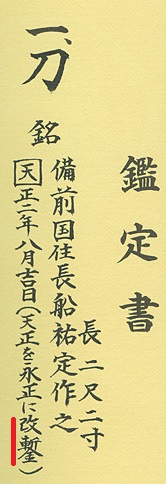 鑑定書
一、刀
長 二尺二寸
銘 備前国住長船祐定作之
天正二年八月吉日(天正を永正に改鏨)